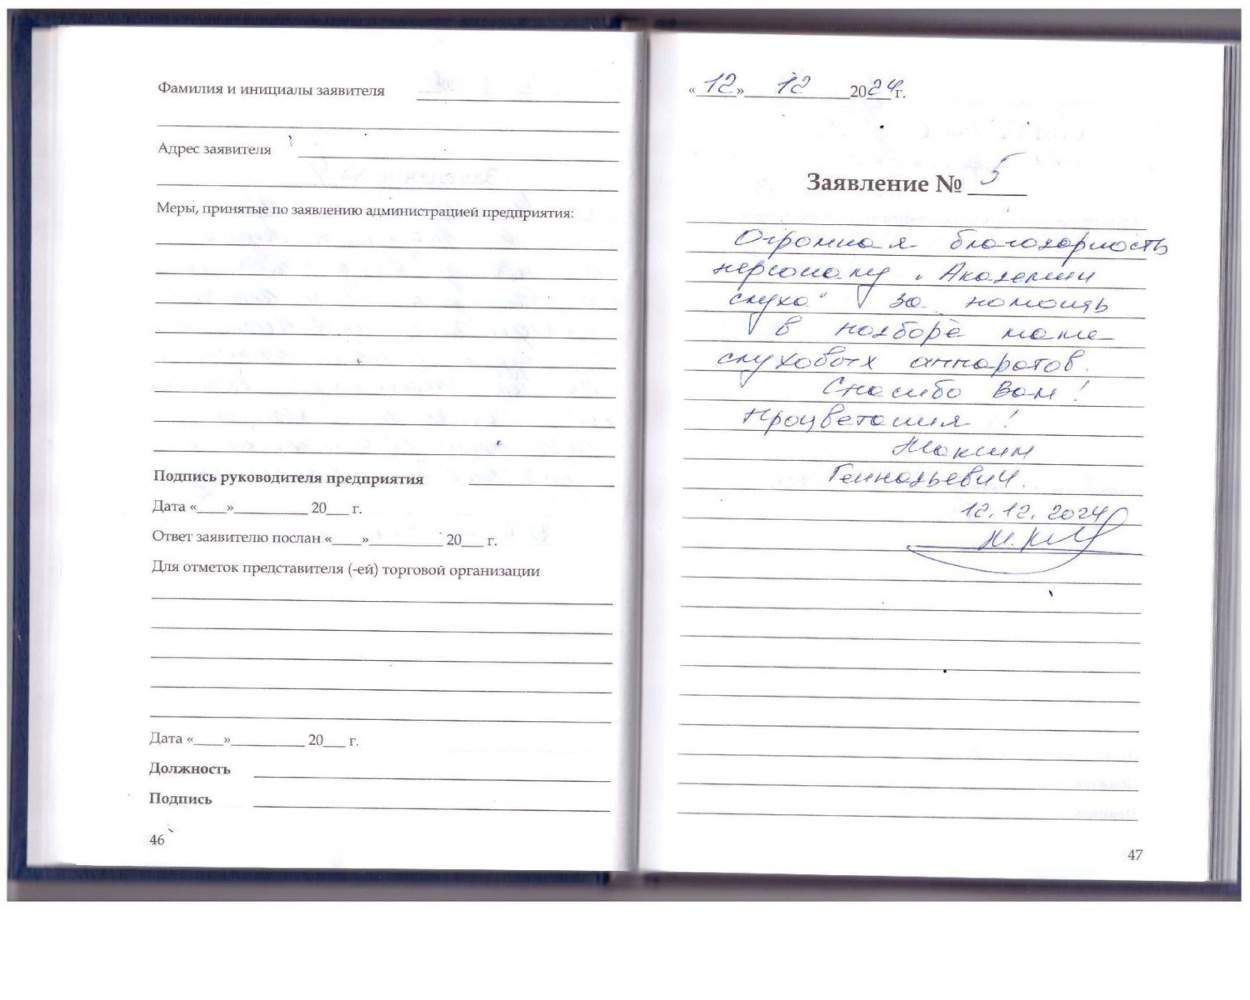 Фамилия и инициалы заявителя
Адрес заявителя
Меры, принятые по заявлению администрацией предприятия:
Подпись руководителя предприятия
Дата «____»__________ 20___ г.
Ответ заявителю послан «____»__________ 20___ г.
Для отметок представителя (-ей) торговой организации
Дата «____»__________ 20___ г.
Должность
Подпись
46
«12» 12 2024 г.
Заявление № 5
Огромная благодарность
персоналу „Академии
слуха“ за помощь
в подборе маме
слуховых аппаратов.
Спасибо Вам!
Процветания!
Максим
Геннадьевич.
12.12.2024
47